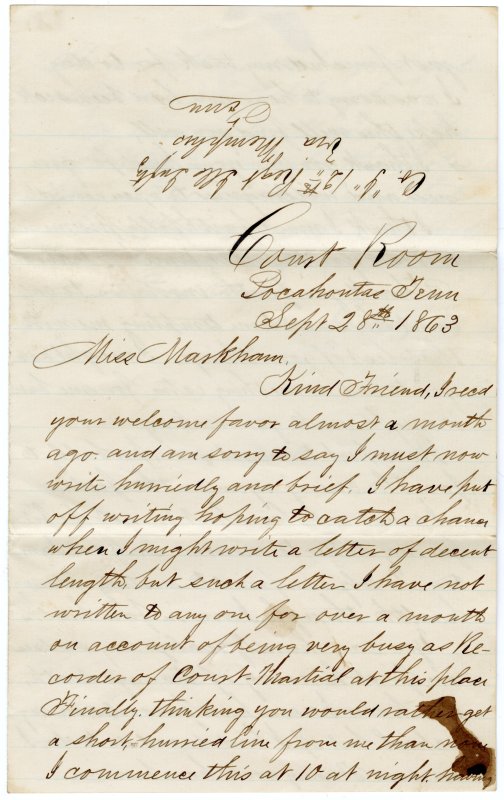 Co. 12th Regt Ills Infty
Via Memphis
Tenn
Court Room
Pocahontas Tenn
Sept 28th 1863
Miss Markham.
Kind Friend, I recd
your welcome favor almost a month
ago. and am sorry to say I must now
write hurriedly and brief. I have put
off writing hoping to catch a chance
when I might write a letter of decent
length, but such a letter I have not
written to any one for over a month
on account of being very busy as Re-
corder of Court-Martial at this place
Finally, thinking you would rather get
a short, hurried line from me than none
I commence this at 10 at night. having